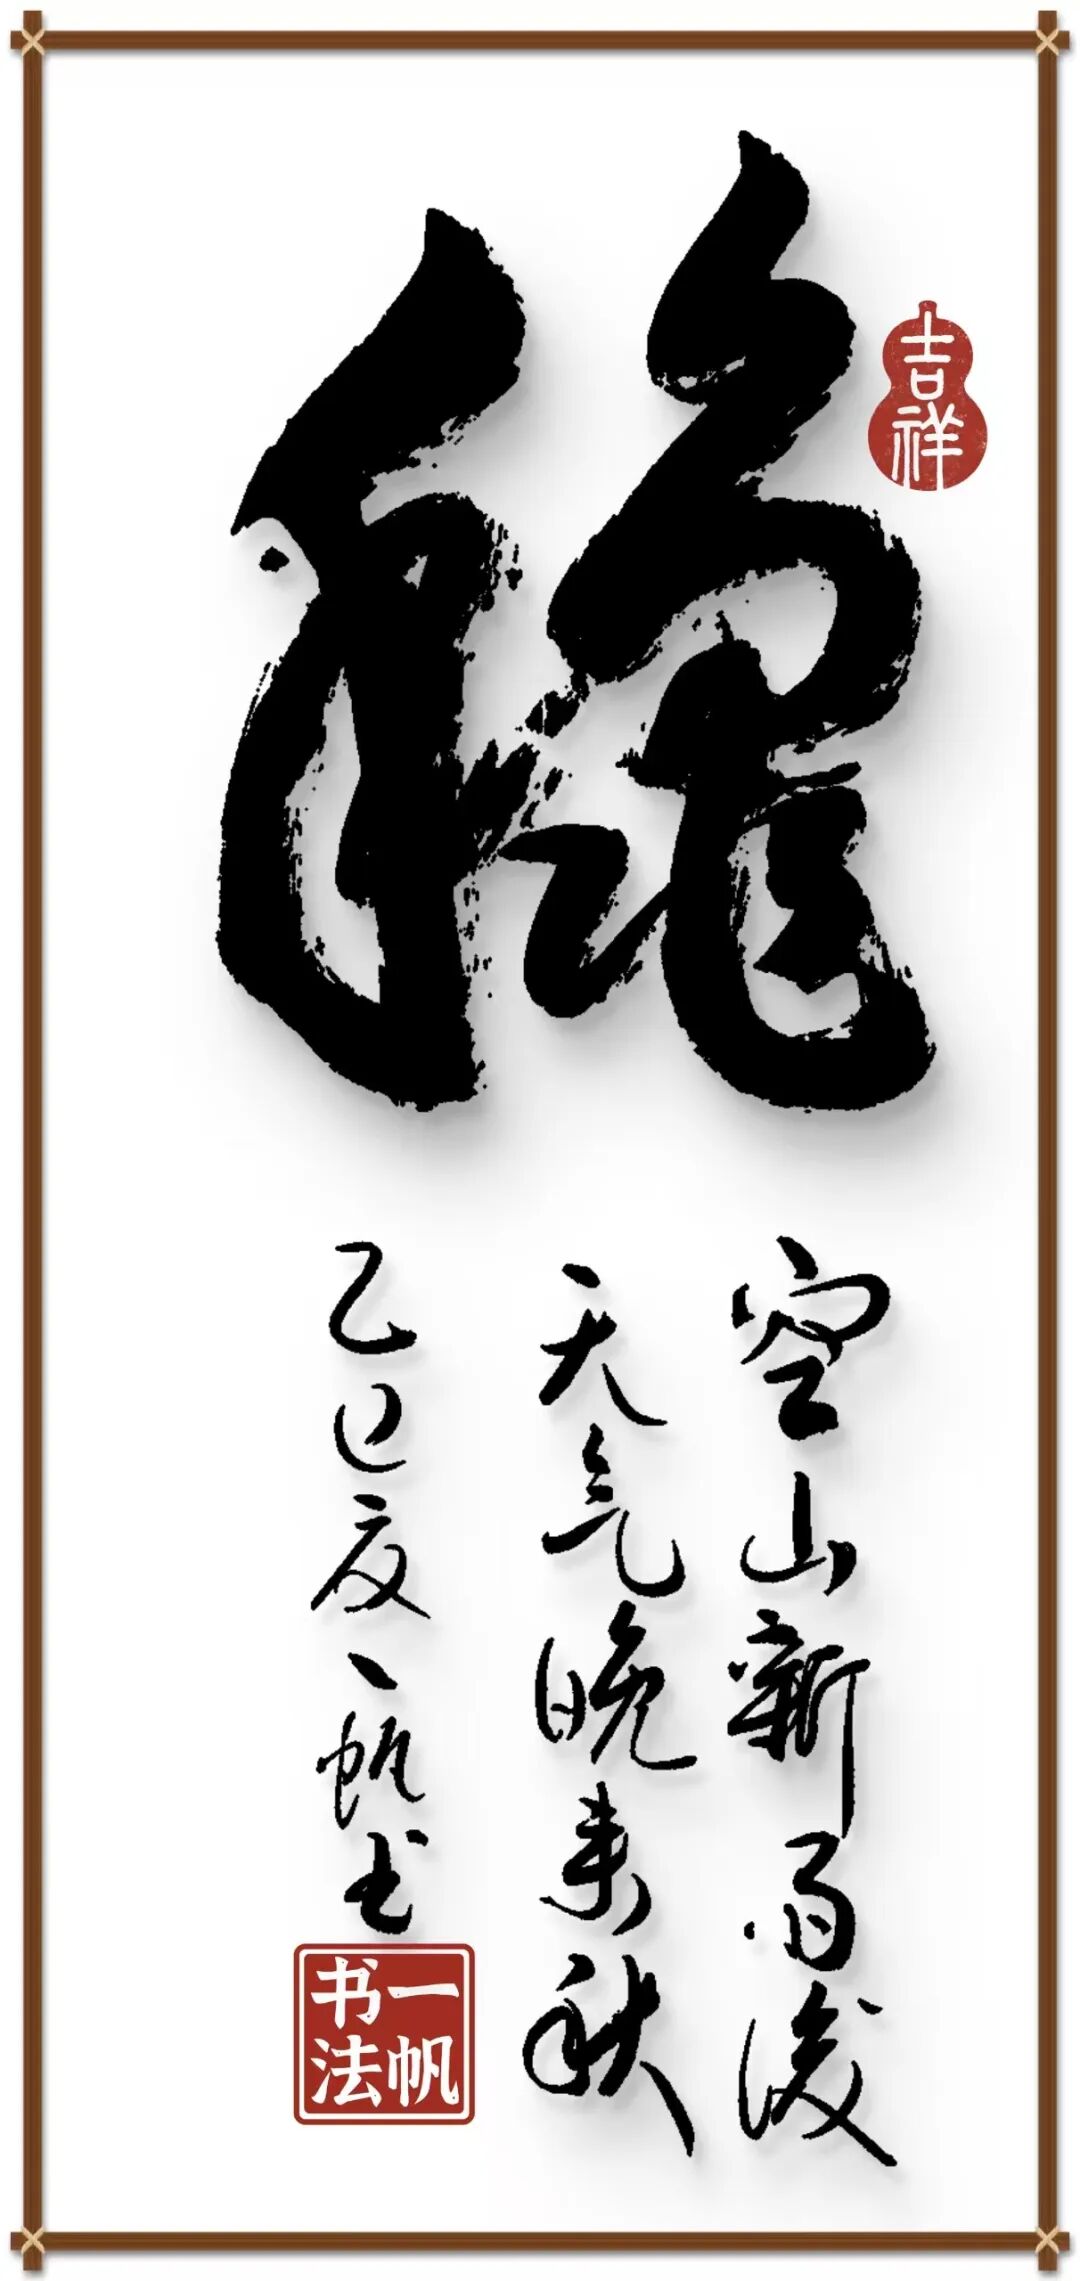 龝
吉祥
空山新雨後
天气晚来秋
乙巳夏一帆书
一帆
书法